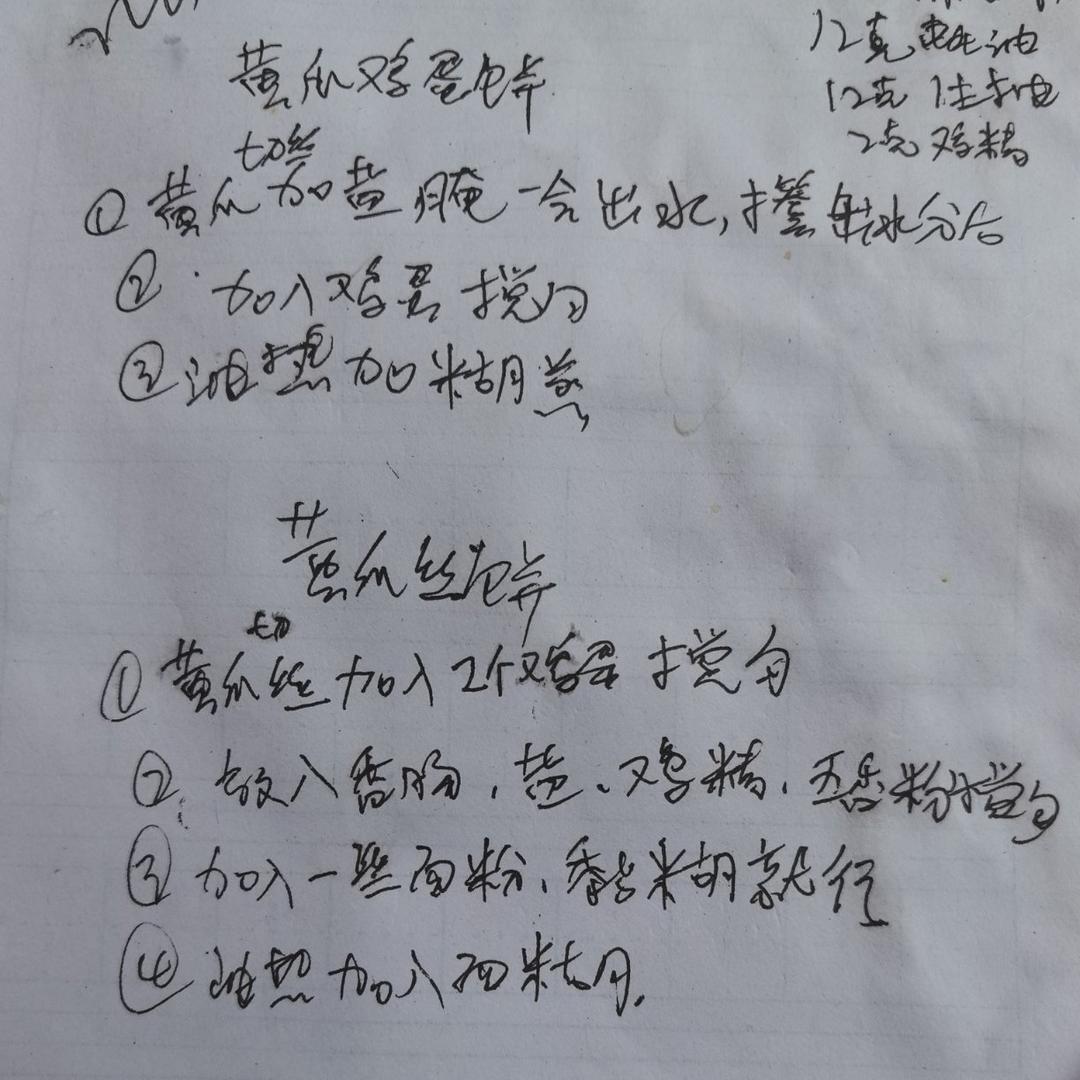 12克耗油
12克生抽
2克鸡精
黄瓜鸡蛋饼
切丝
①黄瓜加盐腌一会出水,攥干水分后
②加入鸡蛋搅匀
③油热加糊
黄瓜丝饼
切
①黄瓜丝加入2个鸡蛋搅匀
②放入香肠、盐、鸡精、五香粉搅匀
③加入一些面粉、黏糊就行
④油热加入面糊.